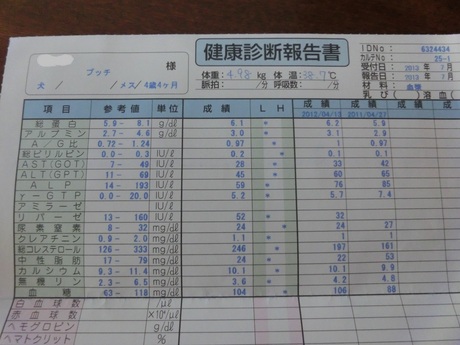 健康診断報告書
IDNo 6324434
カルテNo 25-1
プッチ 様
受付日 2013 年 7月
体重: 4.98 kg 体温:
報告日 2013 年 7月
犬 / メス/ 4歳4ヶ月
脈拍/ 呼吸数/
材料 血漿
乳び( ) 溶血(
項目 参考値 単位 成績 L H 成績 成績
2012/04/13 2011/04/27
総蛋白 5.9 - 8.1 g/dℓ 6.1 * 6.2 5.9
アルブミン 2.7 - 4.6 g/dℓ 3.0 * 3.1 2.9
A/G比 0.72 - 1.24 0.97 * 1 0.97
総ビリルビン 0.0 - 0.3 0.2 * 0.1 0.1
AST(GOT) IU/ℓ 28 * 33 42
ALT(GPT) 11 - 69 IU/ℓ 45 * 60 65
ALP 14 - 193 IU/ℓ 59 * 76 85
γ-GTP 0.0 - 20.0 IU/ℓ 5.2 * 5.7 6.4
アミラーゼ IU/ℓ
リパーゼ 13 - 160 IU/ℓ 52 * 32
尿素窒素 8 - 32 mg/dℓ 24 * 24 27
クレアチニン 0.9 - 2.0 mg/dℓ 1.1 * 1
総コレステロール 126 - 333 mg/dℓ 246 * 197 161
中性脂肪 17 - 79 mg/dℓ 24 * 22 53
カルシウム 9.3 - 11.4 mg/dℓ 10.1 * 10.1 9.9
無機リン 2.3 - 6.5 mg/dℓ 3.6 * 4.8
血糖 63 - 118 mg/dℓ 104 * 106 88
白血球数 /μℓ
赤血球数 ×10⁴/μℓ
ヘモグロビン g/dℓ
ヘマトクリット %